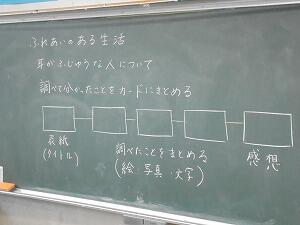 ふれあいのある生活
耳がふじゆうな人について
調べて分かったことをカードにまとめる
表紙
(タイトル)
調べたことをまとめる
(絵 写真 文字)
感想